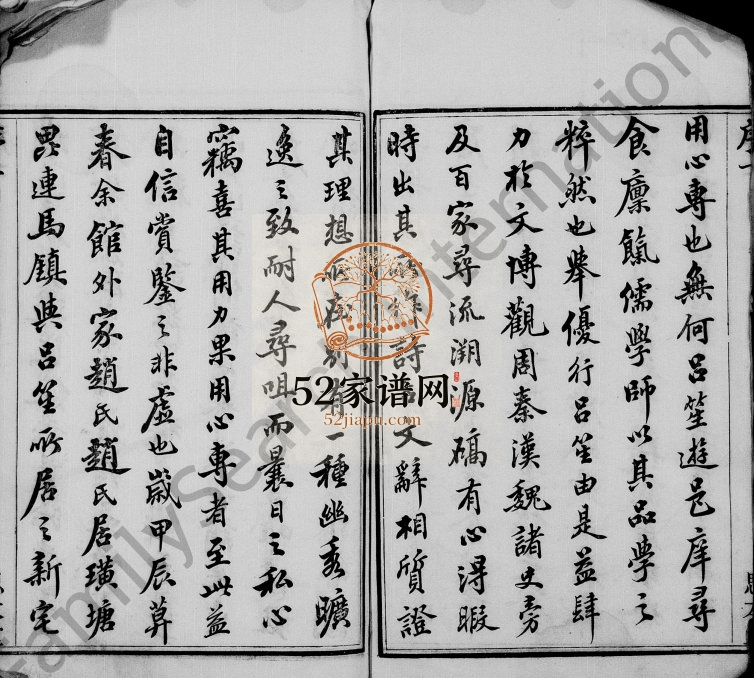 用心專也無何呂笙遊邑庠尋
食廩餼儒學師以其品學之
粹然也舉優行呂笙由是益肆
力於文博觀周秦漢魏諸史旁
及百家尋流溯源礭有心得暇
時出其所作詩古文辭相質證
其理想所在別有一種幽秀曠
逸之致耐人尋咀而曩日之私心
竊喜其用力果用心專者至此益
自信賞鑒之非虛也歲甲辰莫
春余館外家趙氏趙氏居璜塘
毘連馬鎮與呂笙所居之新宅
52家谱网
52jiapu.com
FamilySearch International